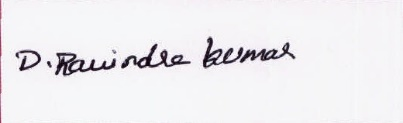 D. Ravindra kumar